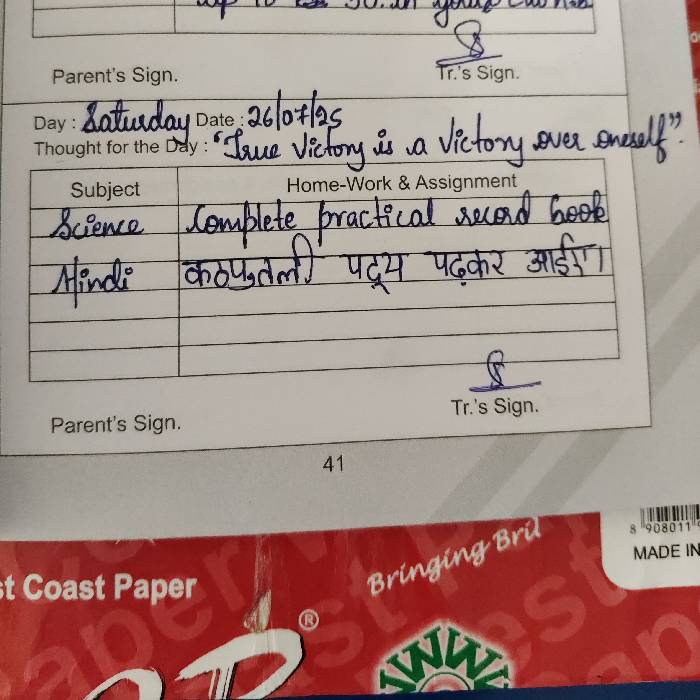 Parent's Sign.
Tr.'s Sign.
Day : Saturday Date : 26/07/25
Thought for the Day : "True Victory is a Victory over oneself".
Subject Home-Work & Assignment
Science Complete practical record book
Hindi कठपुतली पद्य पढ़कर आईए।
Tr.'s Sign.
Parent's Sign.
41
8 908011
MADE IN
st Coast Paper
Bringing Bril
®